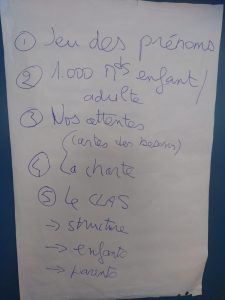 ① Jeu des prénoms
② 1.000 Nts enfant/
adulte
③ Nos attentes
(cartes des besoins)
④ La charte
⑤ Le CLAS
→ structure
→ enfants
→ parents